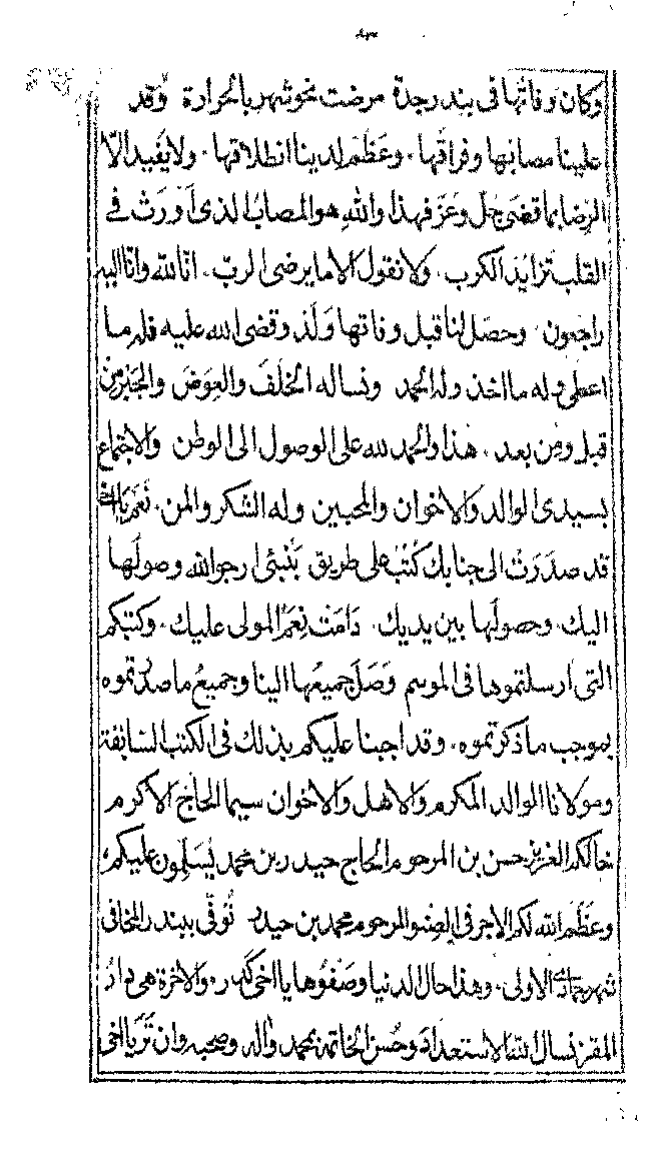 وكان وفاتها في بندر جدة مرضت نحو شهر بالحرارة وقد
علينا مصابها وفراقها. وعَظُمَ لدينا انطلاقها. ولا يفيد الّا
الرضا بما قضى جل وعَزّ فهذا والله هو المصابُ الذي أورَثَ في
القلب تزايُدَ الكرب. ولا نقول الا ما يرضى الربّ. انّا لله وانّا اليه
راجعون وحصَل لنا قبل وفاتها وَلَد وقضى الله عليه فله ما
اعطى وله ما اخذ وله الحمد ونساله الخلَفَ والعِوَضَ والجَبْرَ مِنْ
قبل ومِن بعد. هذا والحمد لله على الوصول الى الوطن والاجتماع
بسيدي الوالد والاخوان والمحبين وله الشكر والمن. نعَم يا اخي
قد صدَرَتْ الى جنابك كُتُب على طريق بَنْبَئي ارجو الله وصولَها
اليك. وحصولَها بين يديك. دَامَتْ نِعَمُ المولى عليك. وكتبكم
التي ارسلتموها في الموسم وَصَلَ جميعُها الينا وجميعُ ما صدرتموه
بموجب ما ذكرتموه. وقد اجبنا عليكم بذلك في الكتب السّابقة
ومولانا الوالد المكرم والاهل والاخوان سيما الحاج الاكرم
خالكم العزيز حسن بن المرحوم الحاج حيدر بن محمد يُسَلِّمون عليكم
وعَظَّمَ الله لكم الاجر في الصِنو المرحوم محمد بن حيدر تُوفّي ببندر المخا في
شهر جمادى الاولى. وهذا حال الدنيا وصَفْوُها يا اخي كَدَر. والاخرة هي دارُ
المقر نسال الله الاستعدادَ وحُسنَ الخاتمة بمحمد واله وصحبه وان تَرَ يا اخي